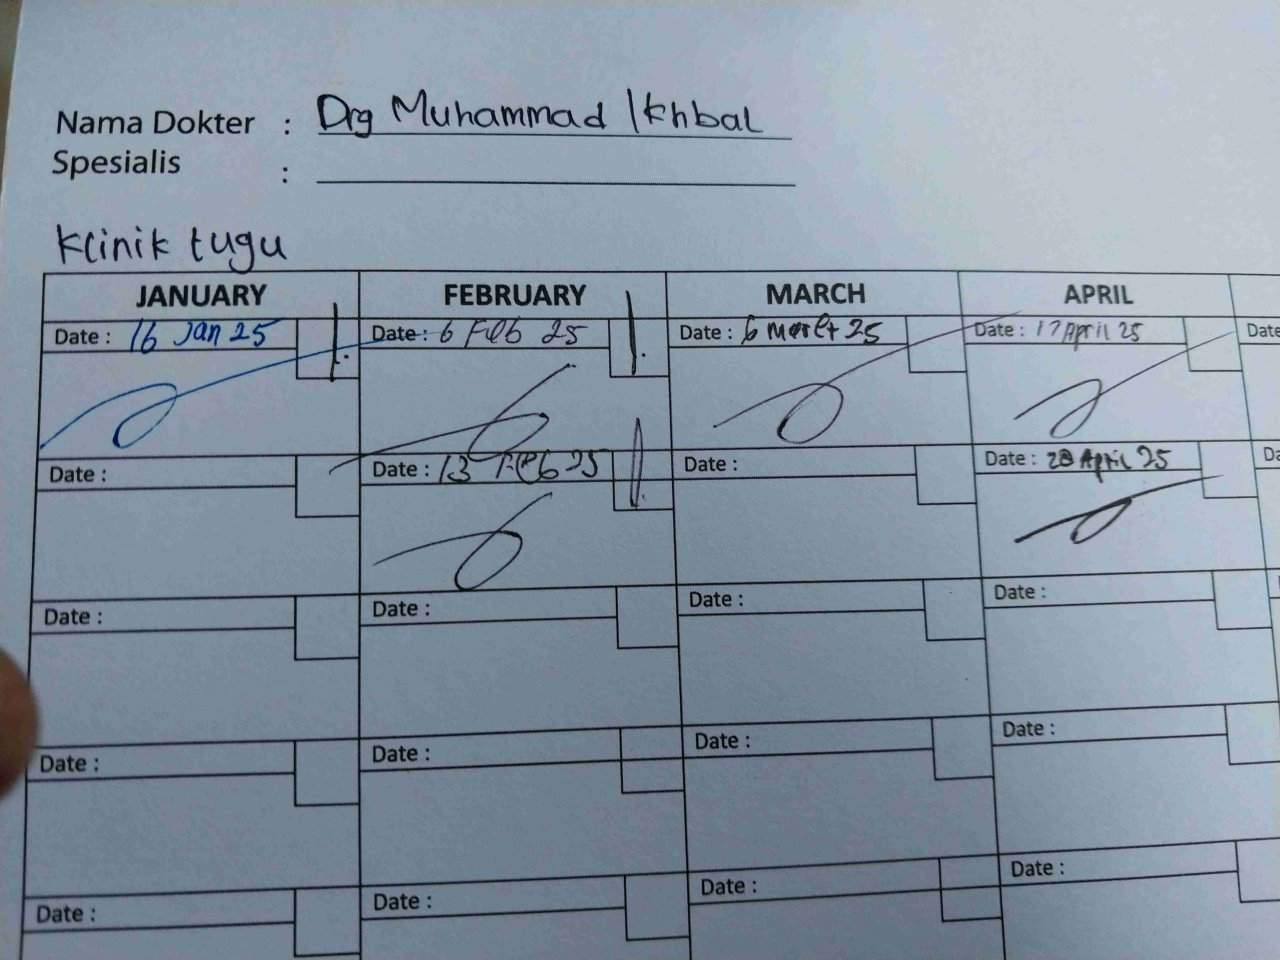 Nama Dokter : Drg Muhammad Ikhbal
Spesialis :
Klinik tugu
JANUARY FEBRUARY MARCH APRIL
Date : 16 Jan 25 Date : 6 Feb 25 Date : 6 Maret 25 Date : 17 April 25 Date
Date : Date : 13 Feb 25 Date : Date : April 25 Da
Date : Date : Date : Date :
Date : Date : Date : Date :
Date : Date : Date : Date :